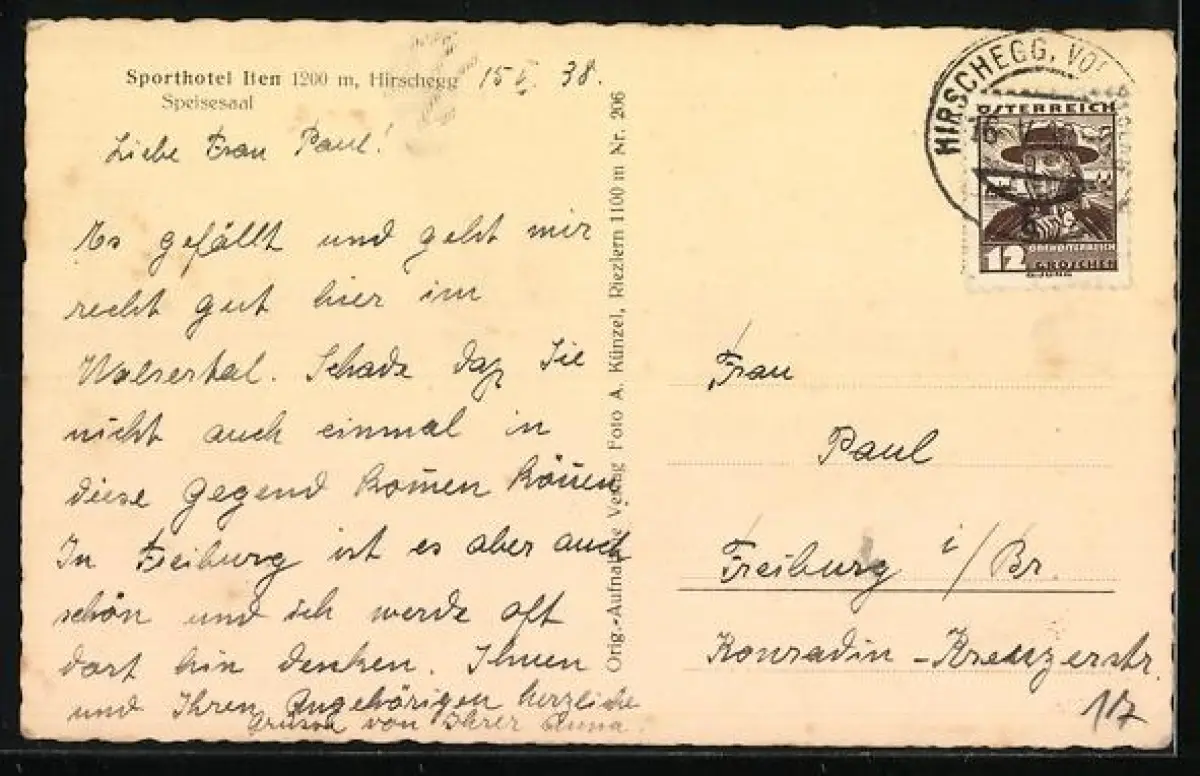 Sporthotel Iten 1200 m, Hirschegg 15 V. 38.
Speisesaal
Liebe Frau Paul!
Es gefällt und geht mir
recht gut hier im
Walsertal. Schade daß Sie
nicht auch einmal in
diese Gegend kom̄en kön̄en
In Freiburg ist es aber auch
schön und ich werde oft
dort hin denken. Ihnen
und Ihren Angehörigen herzliche
Grüsse von Ihrer Anna.
Orig.-Aufnahme Verlag Foto A. Künzel, Riezlern 1100 m Nr. 206
HIRSCHEGG, VOR
ÖSTERREICH
OBERÖSTERREICH
12 GROSCHEN
G. JUNG
Frau
Paul
Freiburg i/Br.
Konradin-Kreuzerstr.